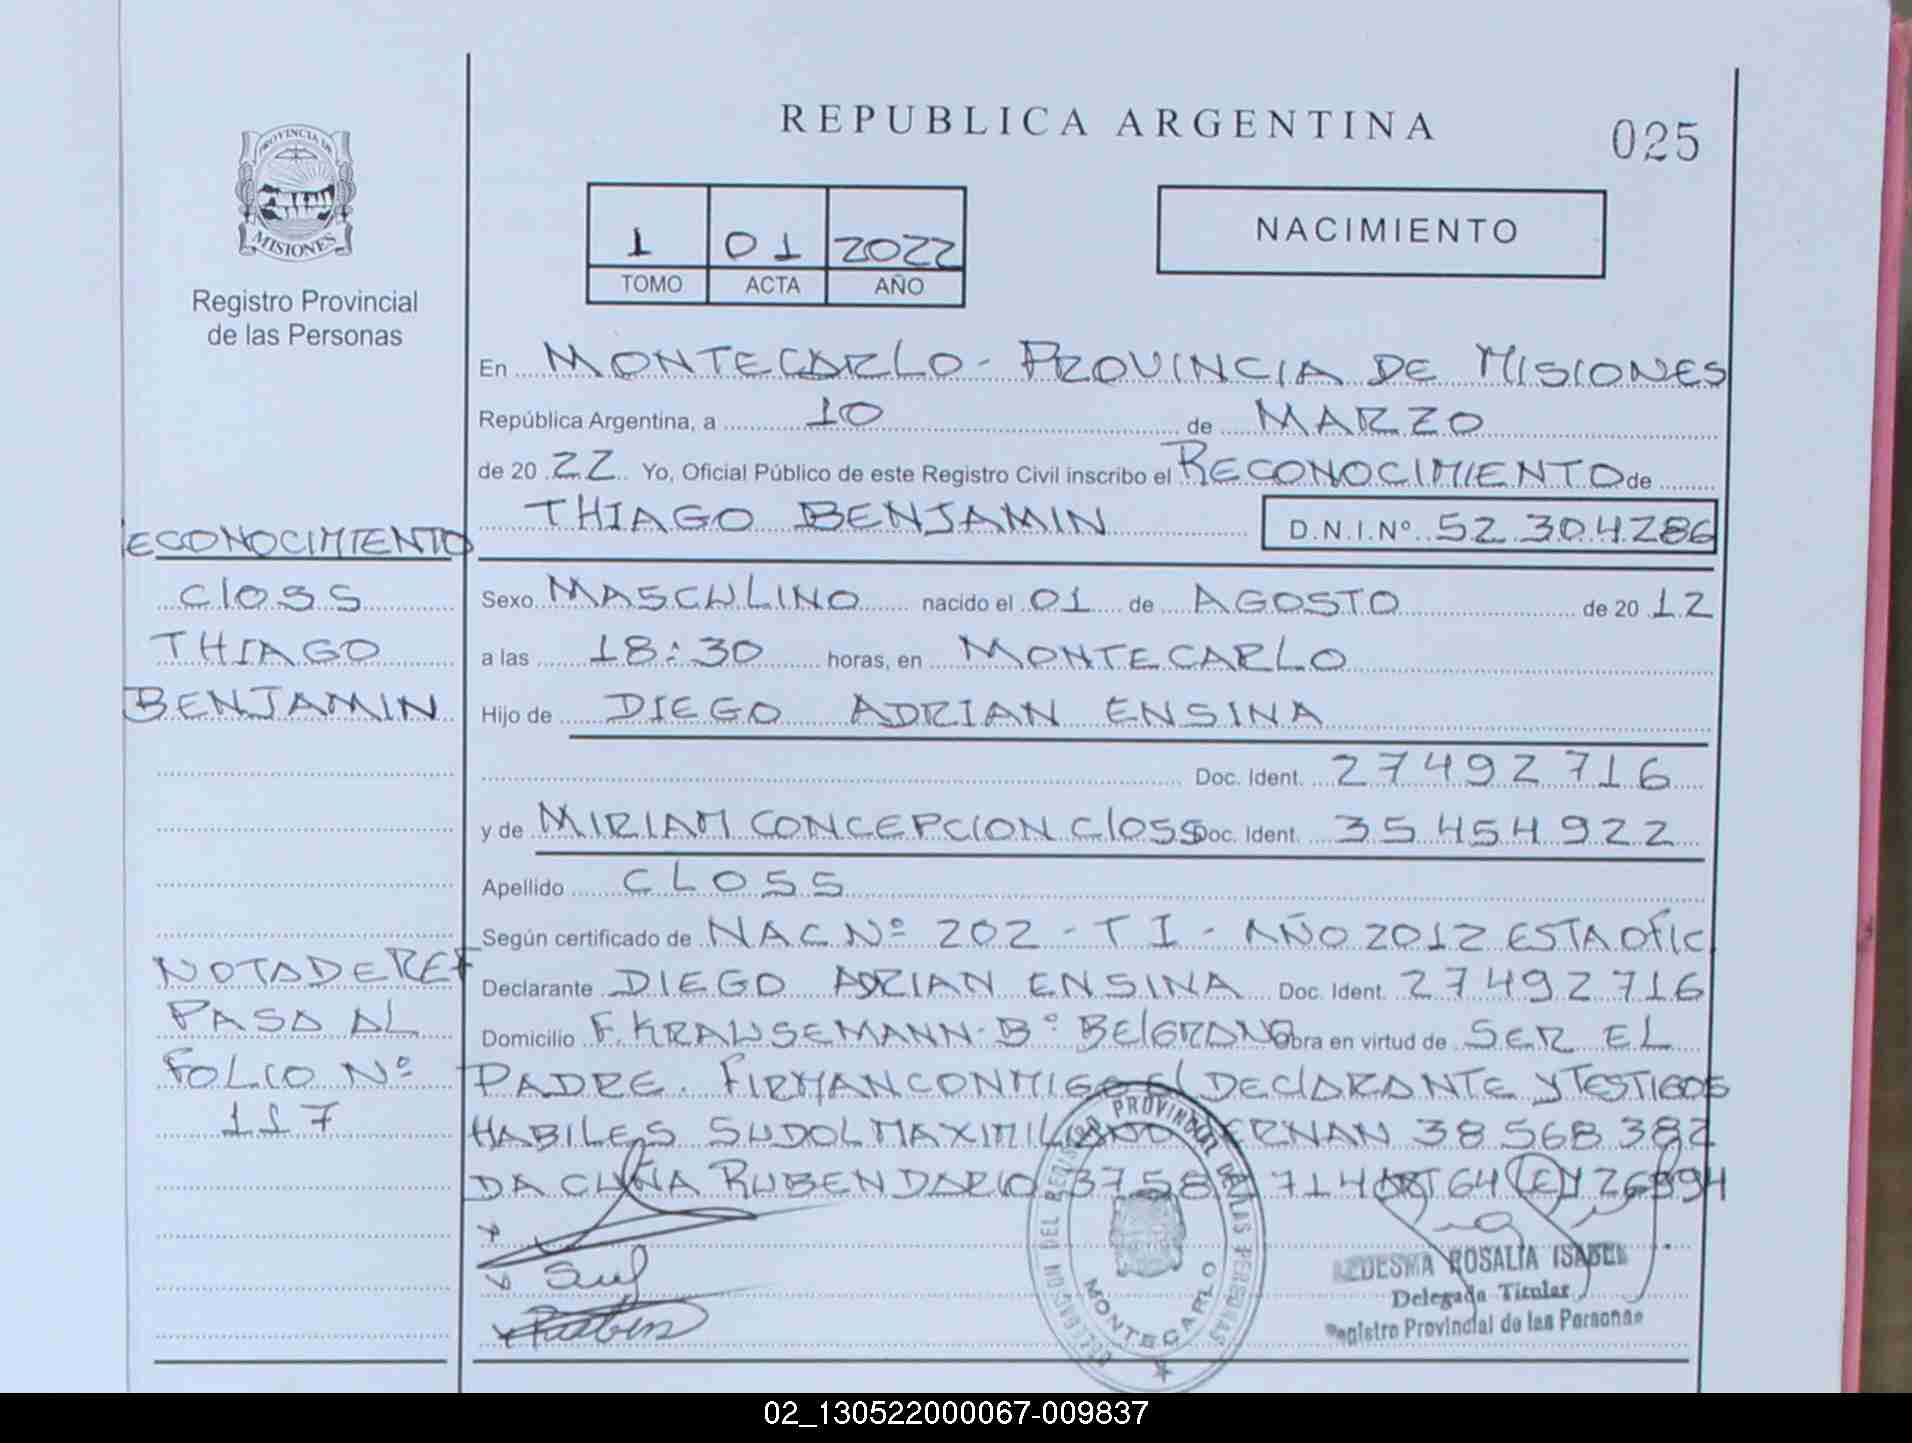 REPUBLICA ARGENTINA
025
PROVINCIA DE
MISIONES
Registro Provincial
de las Personas
1 01 2022
TOMO ACTA AÑO
NACIMIENTO
En MONTECARLO - PROVINCIA DE MISIONES
República Argentina, a 10 de MARZO
de 20 22 Yo, Oficial Público de este Registro Civil inscribo el RECONOCIMIENTO de
THIAGO BENJAMIN D.N.I.Nº 52.304.286
ECONOCIMIENTO
Closs
THIAGO
BENJAMIN
Sexo MASCULINO nacido el 01 de AGOSTO de 20 12
a las 18:30 horas, en MONTECARLO
Hijo de DIEGO ADRIAN ENSINA
Doc. Ident. 27492716
y de MIRIAM CONCEPCION Closs Doc. Ident. 35.454.922
Apellido CLOSS
Según certificado de NAC Nº 202 - T I - AÑO 2012 ESTA OFIC.
Declarante DIEGO ADRIAN ENSINA Doc. Ident. 27492716
Domicilio F. KRAUSEMANN - Bº BELGRANO Obra en virtud de SER EL
PADRE. FIRMAN CONMIGO El DEClARANTE Y TESTIGOS
HABILES SUDOL MAXIMILIANO HERNAN 38 568 382
DA CUÑA RUBEN DARIO 3758 714 ART 64 LEY 26994
NOTA DE REF
PASA AL
FOLIO Nº
117
DELEGACION DEL REGISTRO PROVINCIAL DE LAS PERSONAS
MONTECARLO
LEDESMA ROSALIA ISABEL
Delegada Titular
Registro Provincial de las Personas
02_130522000067-009837